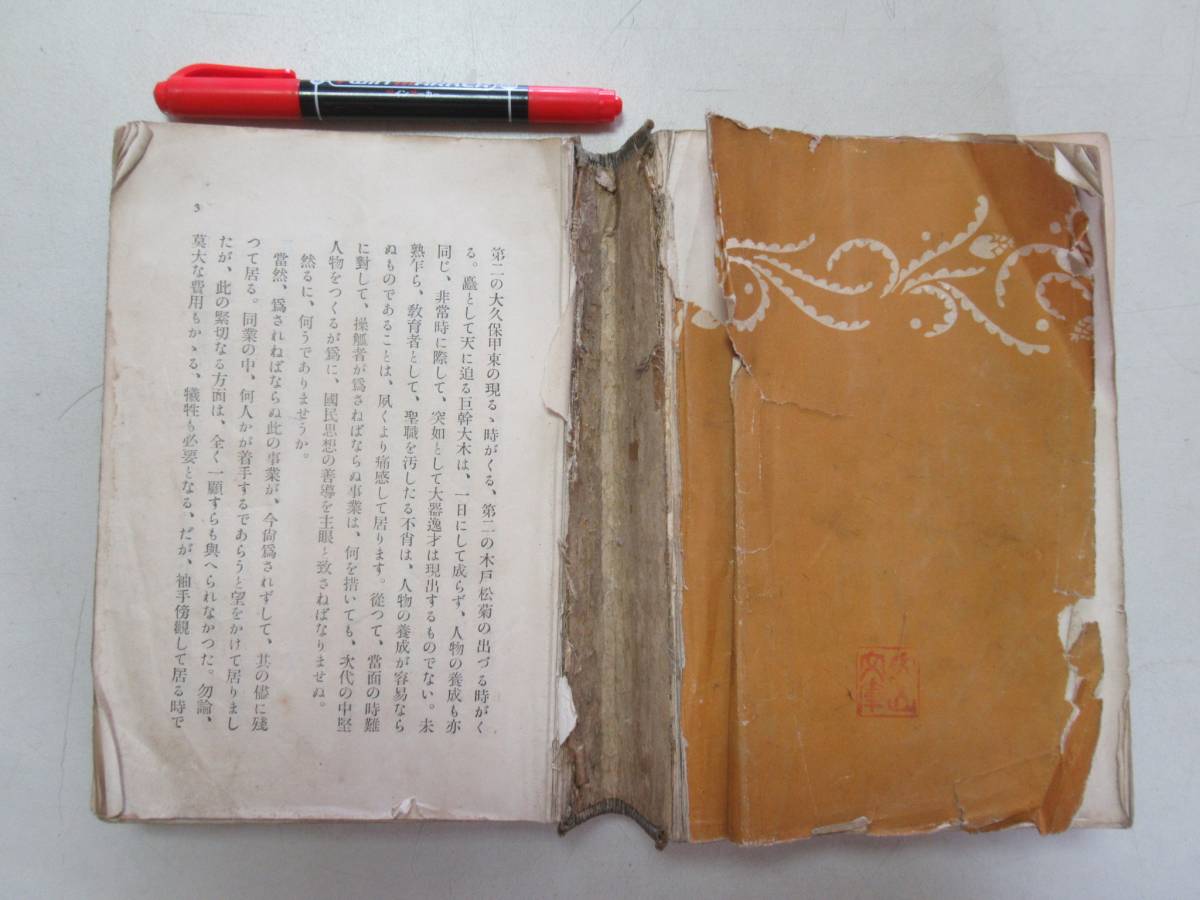 第二の大久保甲東の現るゝ時がくる、第二の木戸松菊の出づる時がく
る。矗として天に迫る巨幹大木は、一日にして成らず、人物の養成も亦
同じ、非常時に際して、突如として大器逸才は現出するものでない。未
熟乍ら、敎育者として、聖職を汚したる不肖は、人物の養成が容易なら
ぬものであることは、夙くより痛感して居ります。從つて、當面の時難
に對して、操觚者が爲さねばならぬ事業は、何を措いても、次代の中堅
人物をつくるが爲に、國民思想の善導を主眼と致さねばなりませぬ。
然るに、何うでありませうか。
當然、爲されねばならぬ此の事業が、今尙爲されずして、其の儘に殘
つて居る。同業の中、何人かが着手するであらうと望をかけて居りまし
たが、此の緊切なる方面は、全く一顧すらも與へられなかつた。勿論、
莫大な費用もかゝる、犠牲も必要となる、だが、袖手傍觀して居る時で
3
山
文庫